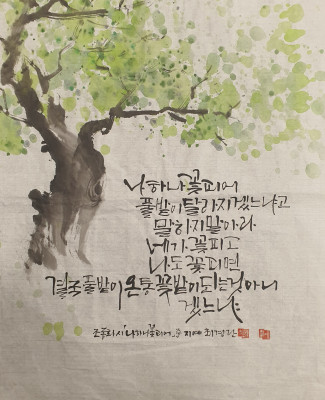 나 하나 꽃피어
풀밭이 달라지겠느냐고
말하지 말아라
네가 꽃피고
나도 꽃피면
결국 풀밭이 온통 꽃밭이 되는것 아니
겠느냐
조동화 시 '나 하나 꽃피어'